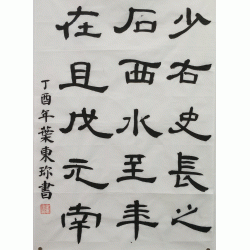 少右史長之
石西水至年
在且戊元南
丁酉年葉東珎書